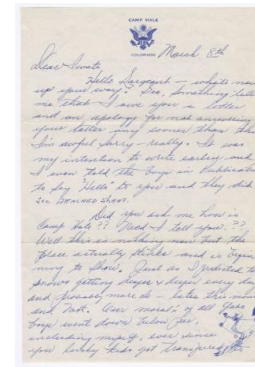 CAMP HALE
COLORADO
March 8th
Dear Smats
Hello Sergeant — what's
up your way? Gee, something tells
me that I owe you a letter
and an apology for not answering
your letter any sooner than this
I'm awful sorry — really. It was
my intention to write earlier and
I even told the boys in Publication
to say "Hello" to you and they did
Did you ask me how is
Camp Hale?? Need I tell you.??
Well this is now but the
place actually stinks mud is begin-
ning to show. Just as I predicted the
snows getting deeper & deeper every day
and more
and that. Our morale of all
boys went down
including myself, ever since
you lovely kids got transferred